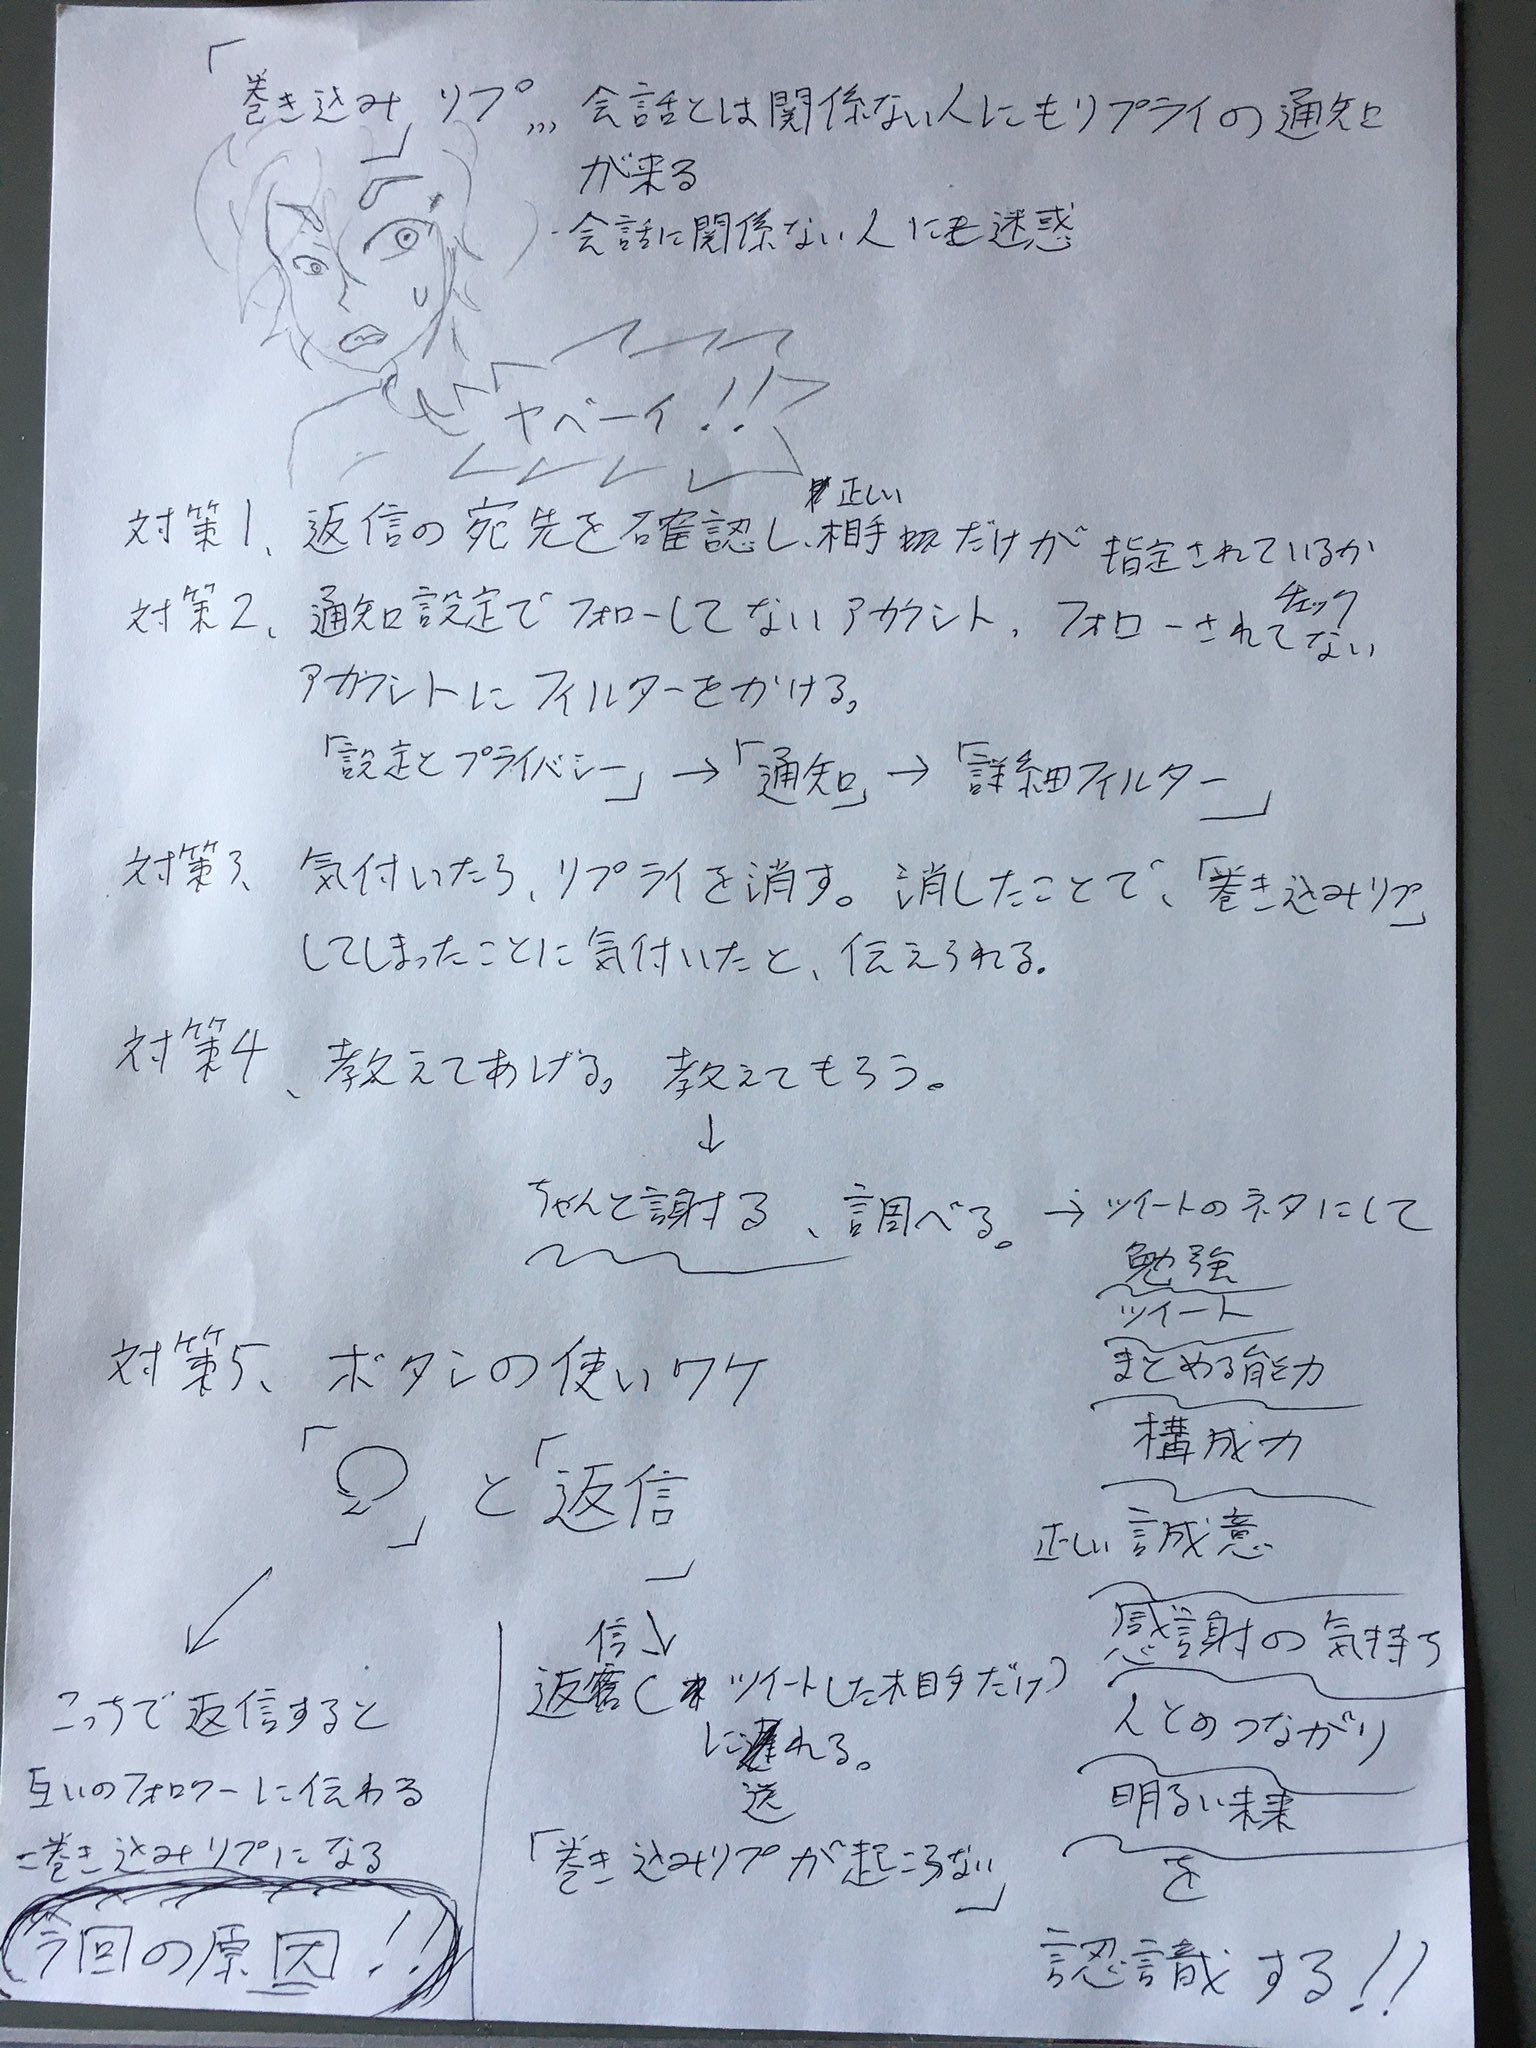 「巻き込みリプ」,,, 会話とは関係ない人にもリプライの通知
が来る
・会話に関係ない人にも迷惑
「ヤベーイ!!
対策1、返信の宛先を確認し、正しい相手だけが指定されているか
チェック
対策2、通知設定でフォローしてないアカウント、フォローされてない
アカウントにフィルターをかける。
「設定とプライバシー」→「通知」→「詳細フィルター」
対策3、気付いたら、リプライを消す。消したことで、「巻き込みリプ」
してしまったことに気付いたと、伝えられる。
対策4、教えてあげる。教えてもらう。
↓
ちゃんと謝する、調べる。→ツイートのネタにして
勉強
ツイート
まとめる能力
構成力
正しい誠意
感謝の気持ち
人とのつながり
明るい未来
を
認識する!!
対策5、ボタンの使いワケ
「」と「返信」
こっちで返信すると
互いのフォロワーに伝わる
=巻き込みリプになる
今回の原因!!
返信(ツイートした相手だけ)
に送れる。
「巻き込みリプが起こらない」